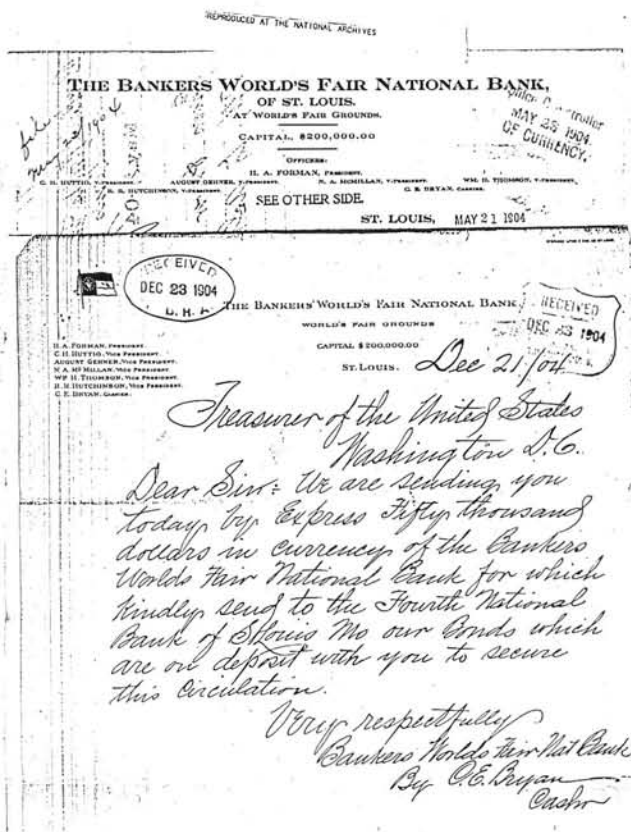 REPRODUCED AT THE NATIONAL ARCHIVES
THE BANKERS WORLD'S FAIR NATIONAL BANK,
OF ST. LOUIS.
AT WORLD'S FAIR GROUNDS.
CAPITAL, $200,000.00
OFFICERS:
H. A. FORMAN, PRESIDENT.
C. H. HUTTIG, V-PRESIDENT. AUGUST GEHNER, V-PRESIDENT. N. A. MCMILLAN, V-PRESIDENT. WM. H. THOMSON, V-PRESIDENT.
HUTCHINSON, V-PRESIDENT. BRYAN, CASHIER.
file
May 1904
MAY 1904
OF CURRENCY.
SEE OTHER SIDE.
ST. LOUIS, MAY 21 1904
RECEIVED
DEC 23 1904
THE BANKERS' WORLD'S FAIR NATIONAL BANK
WORLD'S FAIR GROUNDS
CAPITAL $200,000.00
RECEIVED
DEC 23 1904
H. A. FORMAN, PRESIDENT.
C. H. HUTTIG, VICE PRESIDENT.
AUGUST GEHNER, VICE PRESIDENT.
N. A. MCMILLAN, VICE PRESIDENT.
WM H. THOMSON, VICE PRESIDENT.
HUTCHINSON, VICE PRESIDENT.
BRYAN, CASHIER.
ST. LOUIS. Dec 21/04
Treasurer of the United States
Washington D.C.
Dear Sir:- We are sending you
today by Express Fifty thousand
dollars in currency of the Bankers
Worlds Fair National Bank for which
kindly send to the Fourth National
Bank of St Louis Mo our Bonds which
are on deposit with you to secure
this Circulation.
Very respectfully
Bankers Worlds Fair Nat Bank
By C.E. Bryan
Cashr